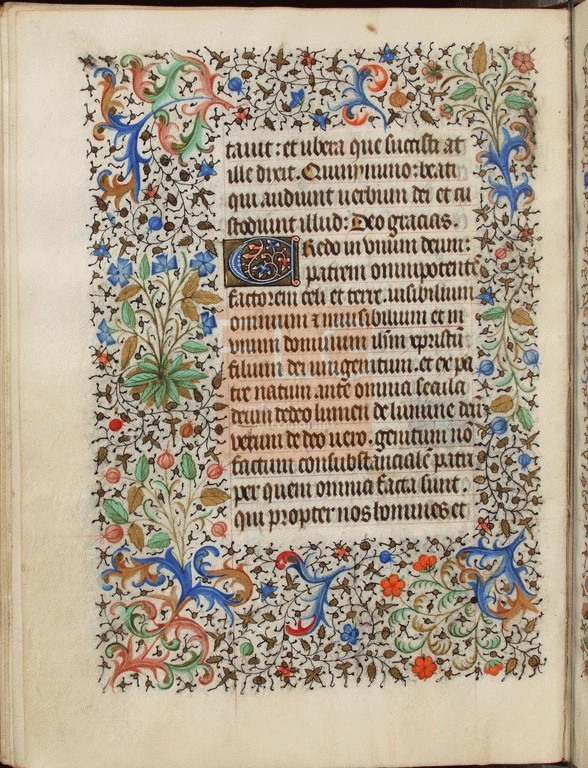 tauit: et ubera que suxisti at
ille dixit. Quinymmo: beati
qui audiunt uerbum dei et cu
stodiunt illud: Deo gracias.
Credo in vnum deum:
patrem omnipotentē
factorem celi et terre. uisibilium
omnium ⁊ inuisibilium et in
vnum dominum ihm̄ xpristū
filium dei unigenitum. et ex pa
tre natum. ante omnia secula
deum de deo lumen de lumine deū
verum de deo uero. genitum nō
factum consubstancialē patri
per quem omnia facta sunt.
qui propter nos homines et